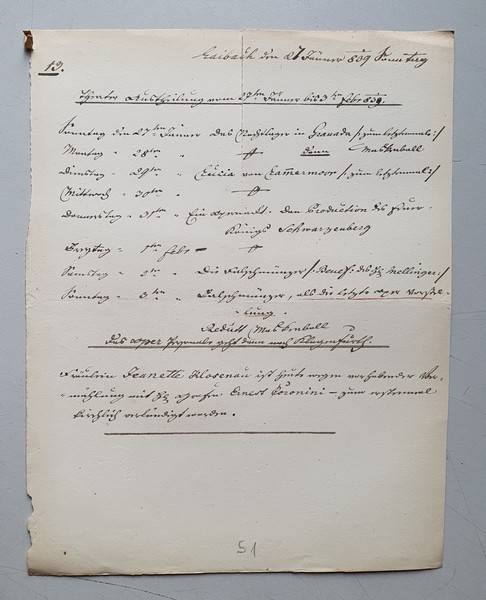 Laibach den 27 Jänner 839 Sonntag
13.
Theater Austheilung vom 27ten Jänner bis 3ten Febr 839.
Sonntag den 27ten Jänner Das Nachtlager in Granada /: zum letztenmale :/
Montag " 28ten " # dann Maskenball
Dienstag " 29ten " Lucia von Lammermoor /: zum letztenmal :/
Mittwoch " 30ten " #
Donnerstag " 31ten " Ein Dann Production des Feuer-
Königs Schwarzenberg
Freytag " 1ten Febr - #
Samstag " 2t " Die Falschmünzer /: Benef. des H. Mellinger :/
Sonntag " 3t " Falschmünzer, als die letzte Oper Vorstel-
-lung.
Redutt Maskenball
Das Oper Personale geht dann nach Klagenfurth.
Fräulein Jeanette Klosenau ist heute wegen vorhabender Ver-
-mählung mit H. Grafen Ernest Coronini – zum erstenmal
kirchlich verkündigt worden.
51